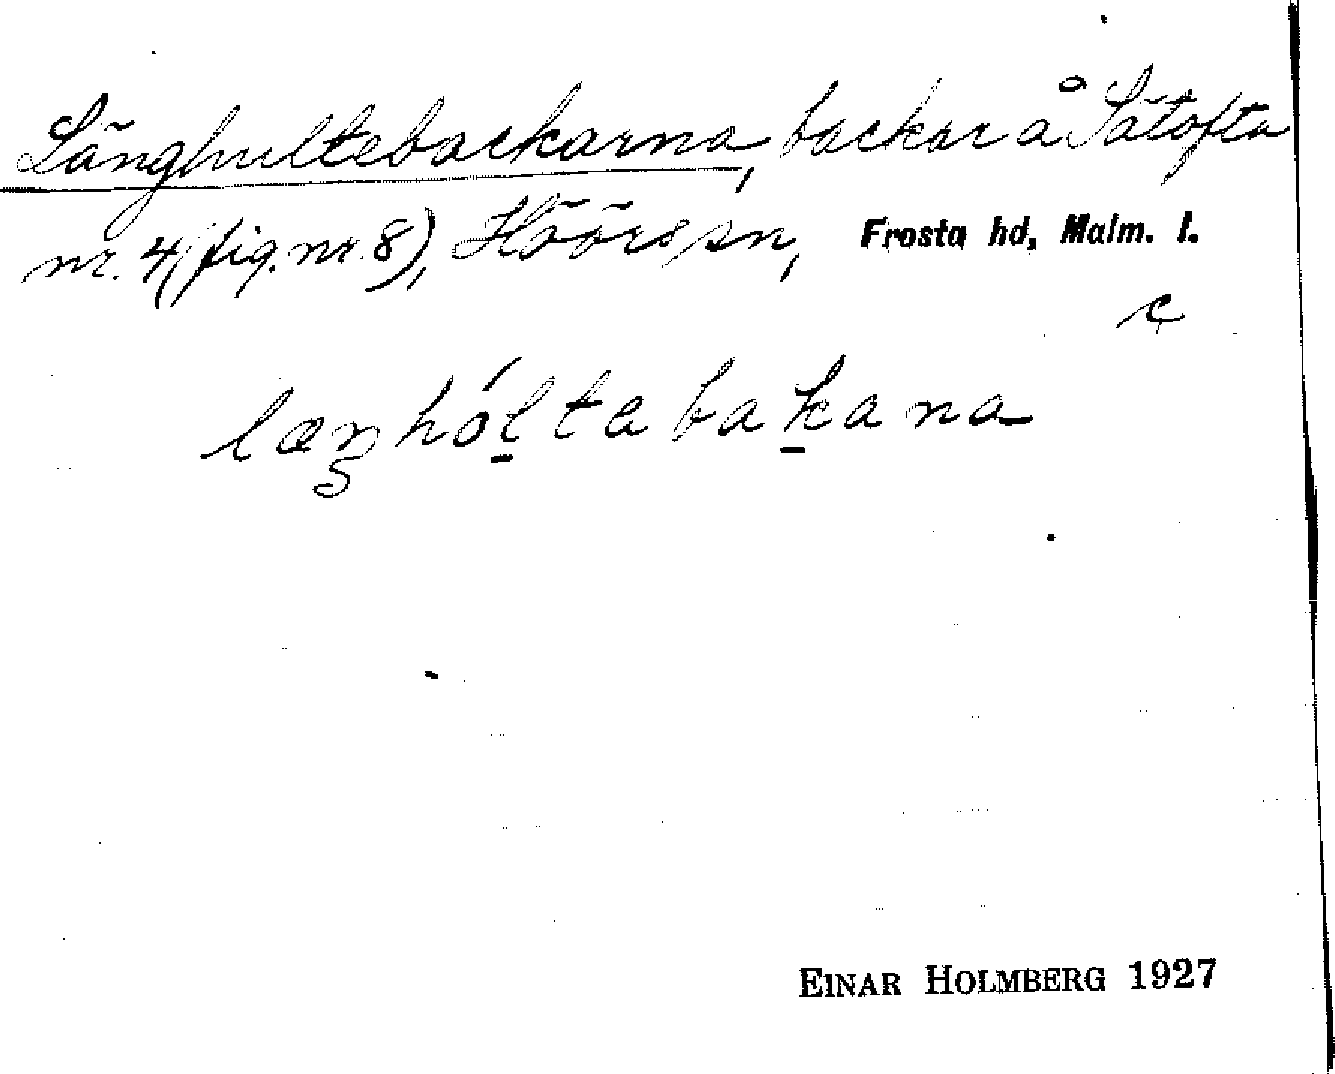 Långhultebackarna, backar å Sätofta
nr. 4 (fig. nr. 8), Höörs sn, Frosta hd, Malm. l.
c
læŋhóltabakana
EINAR HOLMBERG 1927